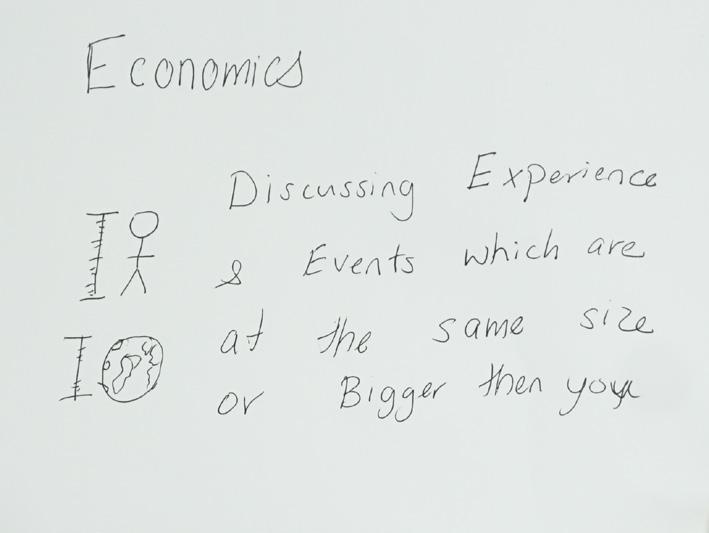 Economics
Discussing Experience
& Events which are
at the same size
or Bigger then you